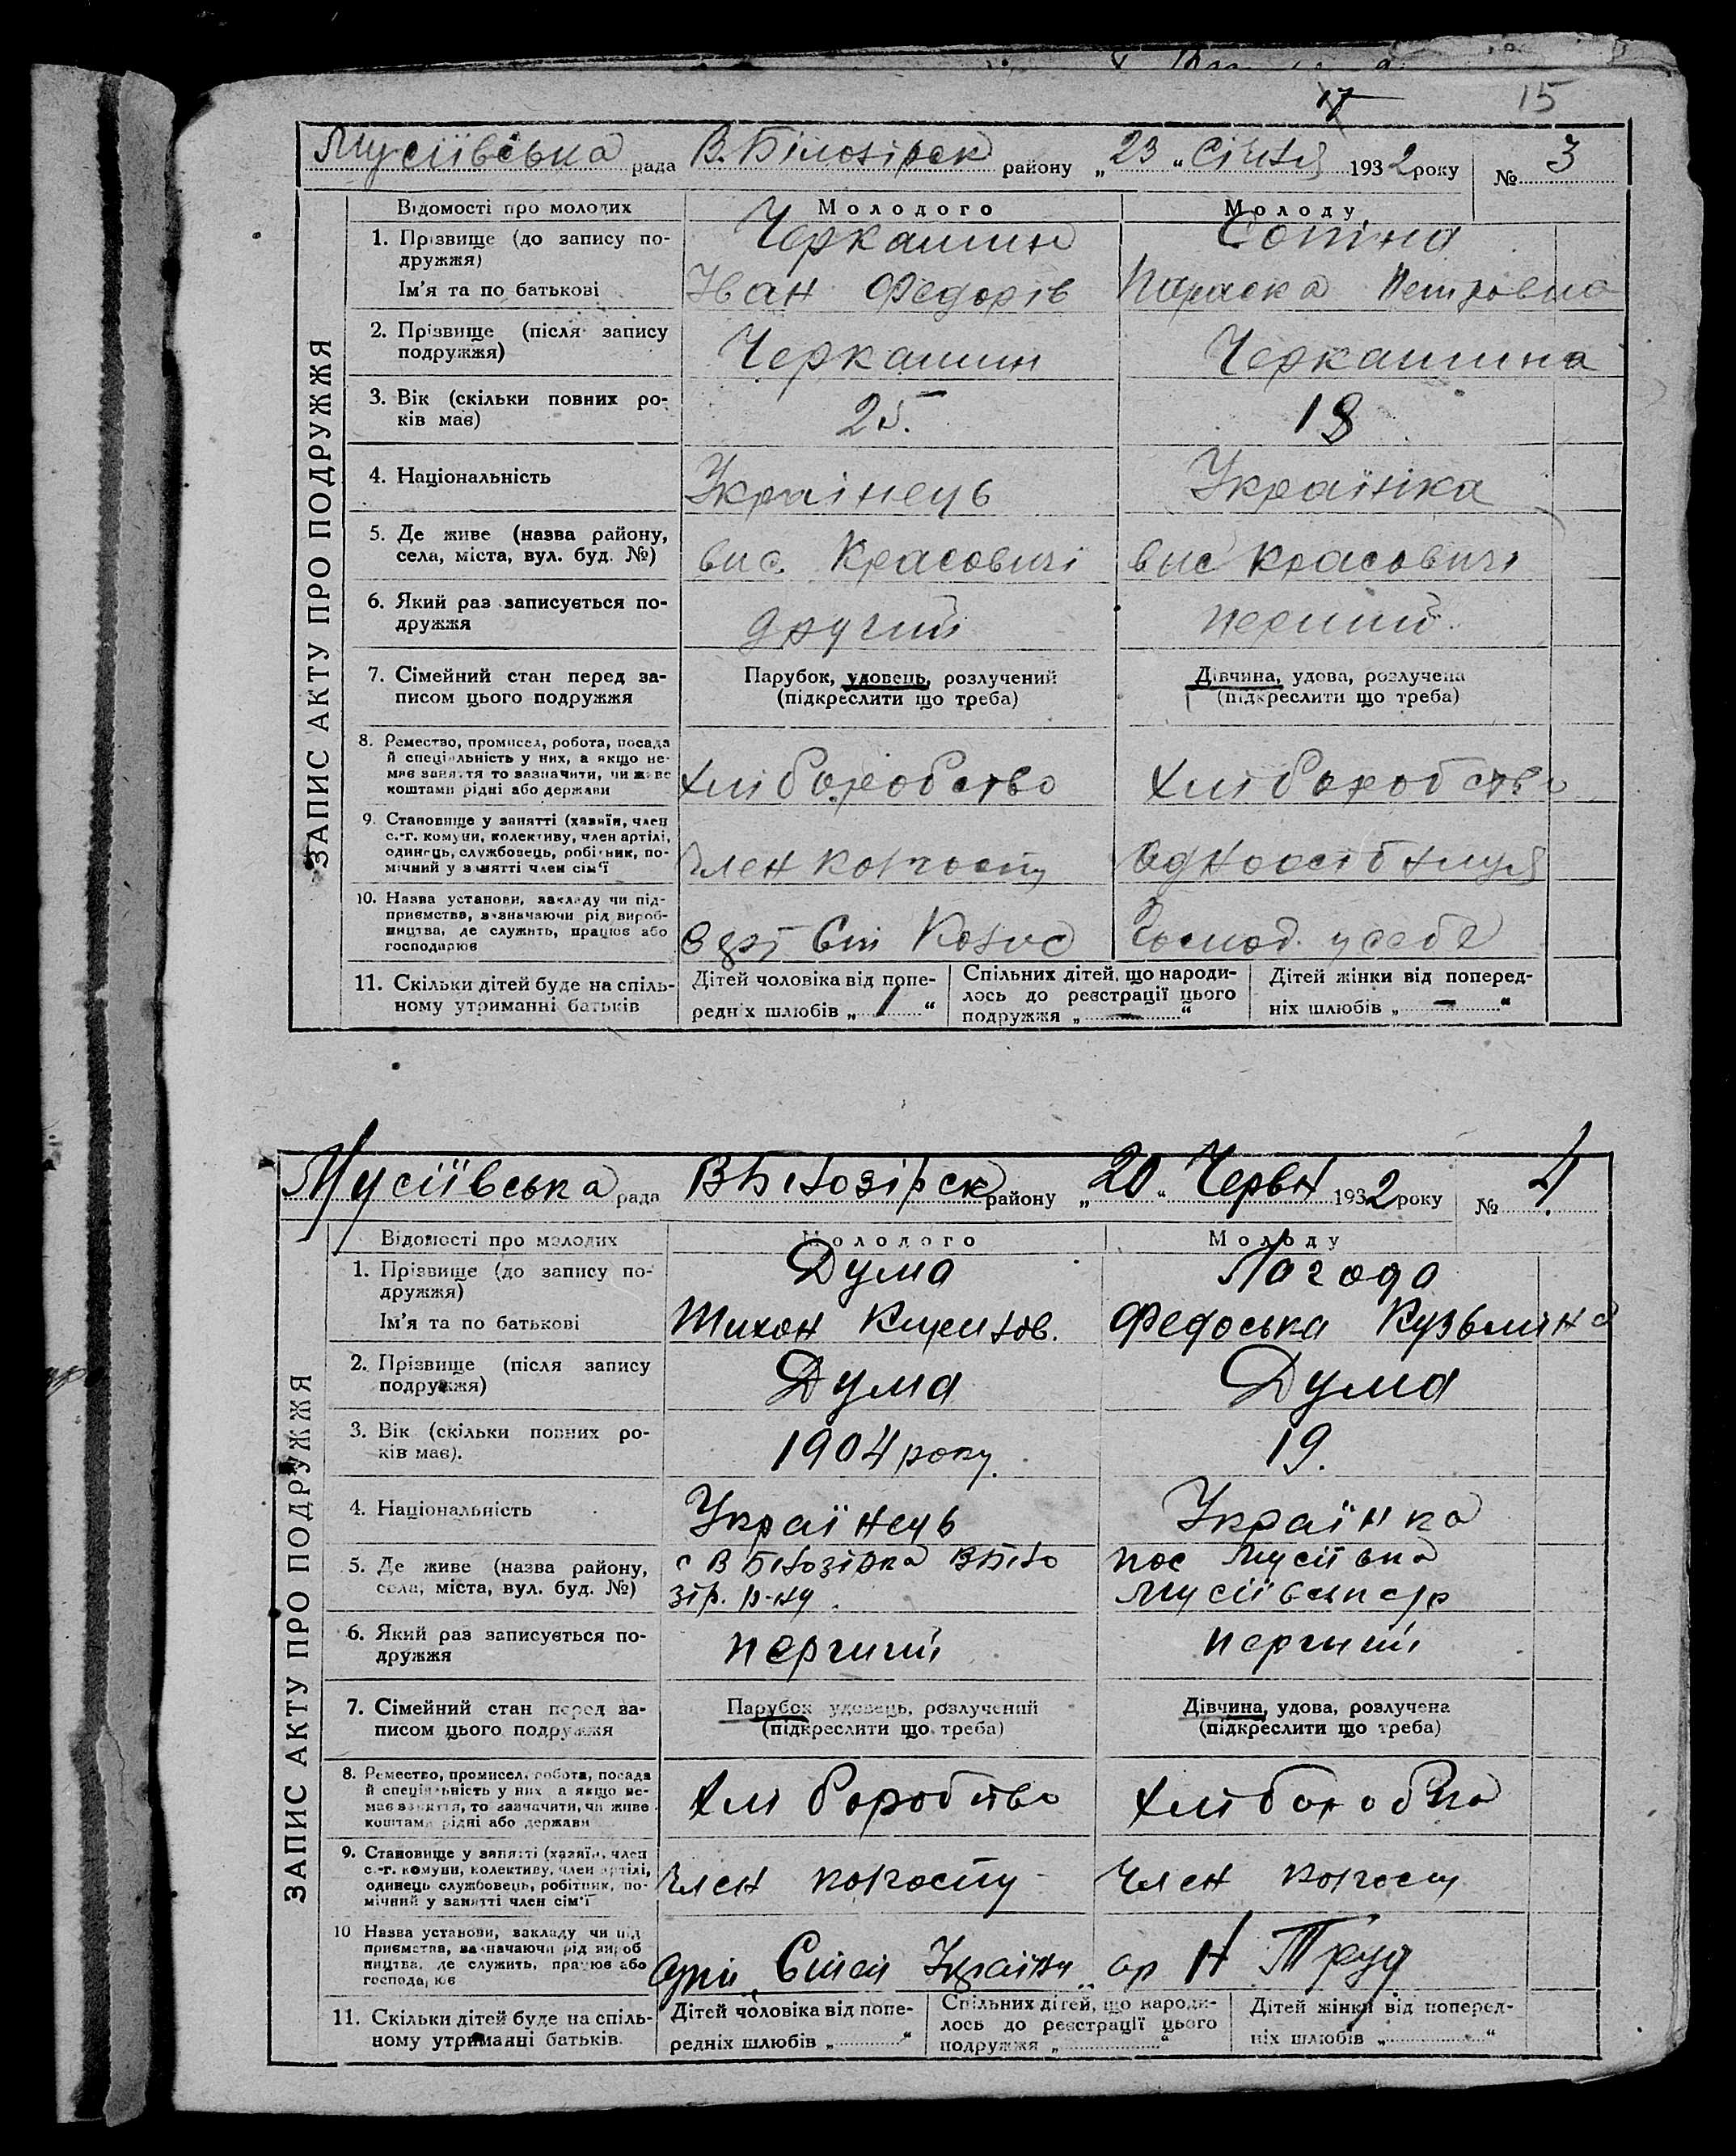 17 15
Мусіївська рада В. Білозірск району „23„ Січня 1932 року № 3
ЗАПИС АКТУ ПРО ПОДРУЖЖЯ
Відомості про молодих Молодого Молоду
1. Прізвище (до запису по- Черкашин Сопіна
дружжя)
Ім'я та по батькові Іван Федорів Параска Петровна
2. Прізвище (після запису
подружжя) Черкашин Черкашина
3. Вік (скільки повних ро-
ків має) 25. 18
4. Національність Українець Українка
5. Де живе (назва району,
села, міста, вул. буд. №) вис. Красовичі вис Красовичі
6. Який раз записується по-
дружжя другий перший
7. Сімейний стан перед за- Парубок, удовець, розлучений Дівчина, удова, розлучена
писом цього подружжя (підкреслити що треба) (підкреслити що треба)
8. Ремество, промисел, робота, посада
й спеціяльність у них, а якщо не-
має заняття то зазначити, чи живе Хліборобство Хліборобство
коштами рідні або держави
9. Становище у занятті (хазяїн, член
с.-г. комуни, колективу, член артілі,
одинець, службовець, робітник, по- Член колгоспу Одноосібниця
мічний у занятті член сім'ї
10. Назва установи, закладу чи під-
приємства, зазначаючи рід вироб-
ництва, де служить, працює або Господ. у себе
господарює
11. Скільки дітей буде на спіль- Дітей чоловіка від попе- Спільних дітей, що народи- Дітей жінки від поперед-
ному утриманні батьків редніх шлюбів „ 1 “ лось до реєстрації цього ніх шлюбів „ — “
подружжя „ — “
Мусіївська рада ВБілозірск району „20„ Червн 1932 року № 4
ЗАПИС АКТУ ПРО ПОДРУЖЖЯ
Відомості про молодих Молодого Молоду
1. Прізвище (до запису по- Дума Лагода
дружжя)
Ім'я та по батькові Тихон Федоська Кузьминa
2. Прізвище (після запису
подружжя) Дума Дума
3. Вік (скільки повних ро-
ків має). 1904 року. 19.
4. Національність Українець Українка
5. Де живе (назва району, с В Білозірка ВБіло пос Мусіївка
села, міста, вул. буд. №) зір. р-ну. Мусіївск с/р
6. Який раз записується по-
дружжя перший перший
7. Сімейний стан перед за- Парубок удовець, розлучений Дівчина, удова, розлучена
писом цього подружжя (підкреслити що треба) (підкреслити що треба)
8. Ремество, промисел, робота, посада
й спеціяльність у них а якщо не-
має заняття, то зазначити, чи живе Хліборобство Хліборобка
коштами рідні або держави
9. Становище у занятті (хазяїн, член
с.-г. комуни, колективу, член артілі,
одинець службовець, робітник, по- Член колгоспу Член колгосп
мічний у занятті член сім'ї
10 Назва установи, закладу чи під
приємства, зазначаючи рід вироб
ництва, де служить, працює або України„ ар Н Труд
господарює
11. Скільки дітей буде на спіль- Дітей чоловіка від попе- Спільних дітей, що народи- Дітей жінки від поперед-
ному утриманні батьків. редніх шлюбів „ “ лось до реєстрації цього ніх шлюбів „ “
подружжя „ “